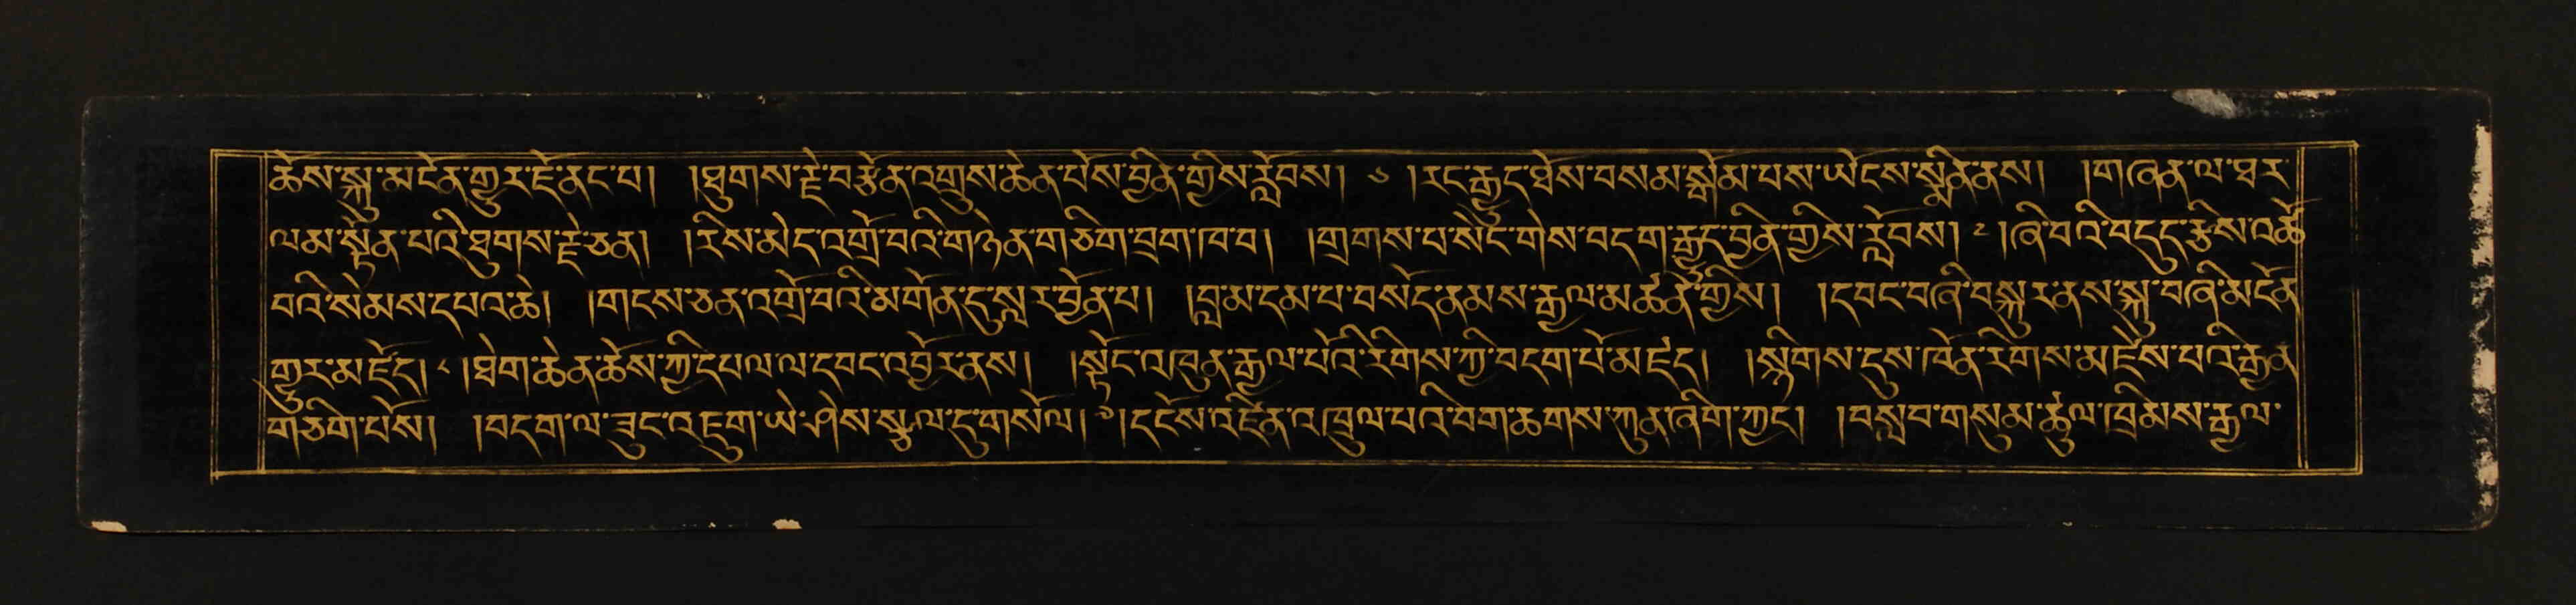 ཆོས་སྐུ་མངོན་གྱུར་ཇོ་ནང་པ། །ཐུགས་རྗེ་བརྩོན་འགྲུས་ཆེན་པོས་བྱིན་གྱིས་རློབས། ༦ །རང་རྒྱུད་ཐོས་བསམ་སྒོམ་པས་ཡོངས་སྨིན་ནས། །གཞན་ལ་ཐར་
ལམ་སྟོན་པའི་ཐུགས་རྗེ་ཅན། །རིས་མེད་འགྲོ་བའི་གཉེན་གཅིག་བྲག་ཁ་བ། །གྲགས་པ་སེང་གེས་བདག་རྒྱུད་བྱིན་གྱིས་རློབས། ༧ །ཞི་བའི་བདུད་རྩིས་འཚོ་
བའི་སེམས་དཔའ་ཆེ། །གངས་ཅན་འགྲོ་བའི་མགོན་དུ་སླར་བྱོན་པ། །བླ་མ་དམ་པ་བསོད་ནམས་རྒྱལ་མཚན་གྱིས། །དབང་བཞི་བསྐུར་ནས་སྐུ་བཞི་མངོན་
གྱུར་མཛོད། ༨ །ཐེག་ཆེན་ཆོས་ཀྱི་དཔལ་ལ་དབང་འབྱོར་ནས། །སྟོང་འཁུན་རྒྱལ་པོའི་རིགས་ཀྱི་བདག་པོ་མཛད། །སྙིགས་དུས་ཁོན་རིགས་མཛེས་པའི་རྒྱན་
གཅིག་པོས། །བདག་ལ་ཟུང་འཇུག་ཡེ་ཤེས་སྩལ་དུ་གསོལ། ༩ །དངོས་འཛིན་འཁྲུལ་པའི་བག་ཆགས་ཀུན་ཞིག་ཀྱང་། །བསླབ་གསུམ་ཚུལ་ཁྲིམས་རྒྱལ་